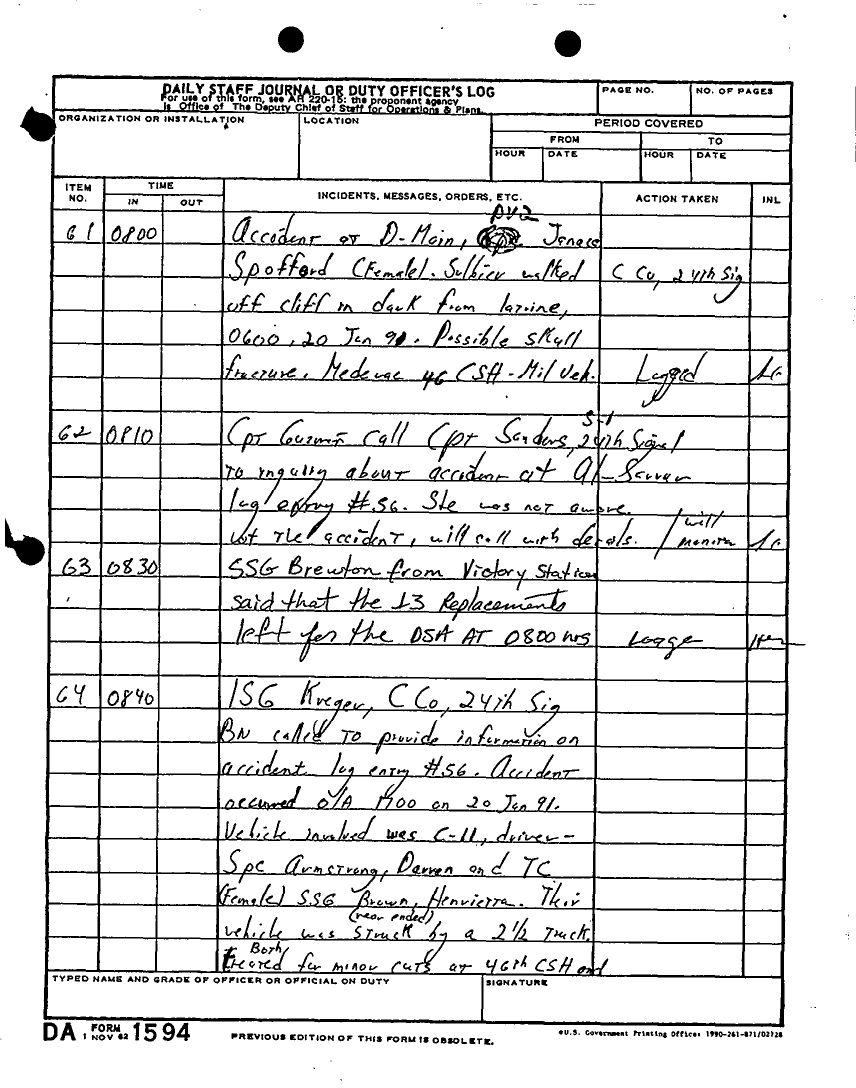 DAILY STAFF JOURNAL OR DUTY OFFICER'S LOG
For use of this form, see AR 220-15; the proponent agency
is Office of The Deputy Chief of Staff for Operations & Plans.
PAGE NO.
NO. OF PAGES
ORGANIZATION OR INSTALLATION
LOCATION
PERIOD COVERED
FROM
TO
HOUR
DATE
HOUR
DATE
ITEM NO.
TIME
IN
OUT
INCIDENTS, MESSAGES, ORDERS, ETC.
ACTION TAKEN
INL
PV2
61 0800 Accident at D-Main, Janace
Spofford (Female). Soldier walked C Co, 24th Sig
off cliff in dark from latrine,
0600, 20 Jan 91. Possible skull
fracture. Medevac 46 CSH - Mil Veh. Logged
S-1
62 0810 Cpt Guzman call Cpt Sanders, 24th Signal
to inquiry about accident at Al-
log entry #56. She was not aware
of the accident, will call with details. will monitor
63 0830 SSG Brewton from Victory Station
said that the 13 Replacements
left for the DSA AT 0800 hrs Logge
64 0840 1SG Kreger, C Co, 24th Sig
BN called to provide information on
accident log entry #56. Accident
occurred O/A 1700 on 20 Jan 91.
Vehicle involved was C-11, driver-
Spc Armstrong, Darren and TC
(Female) SSG Brown, Henrietta. Their
(rear ended)
vehicle was struck by a 2½ truck.
Both
treated for minor cuts at 46th CSH and
TYPED NAME AND GRADE OF OFFICER OR OFFICIAL ON DUTY
SIGNATURE
DA FORM 1 NOV 62 1594
PREVIOUS EDITION OF THIS FORM IS OBSOLETE.
U.S. Government Printing Office: 1990-261-871/02728